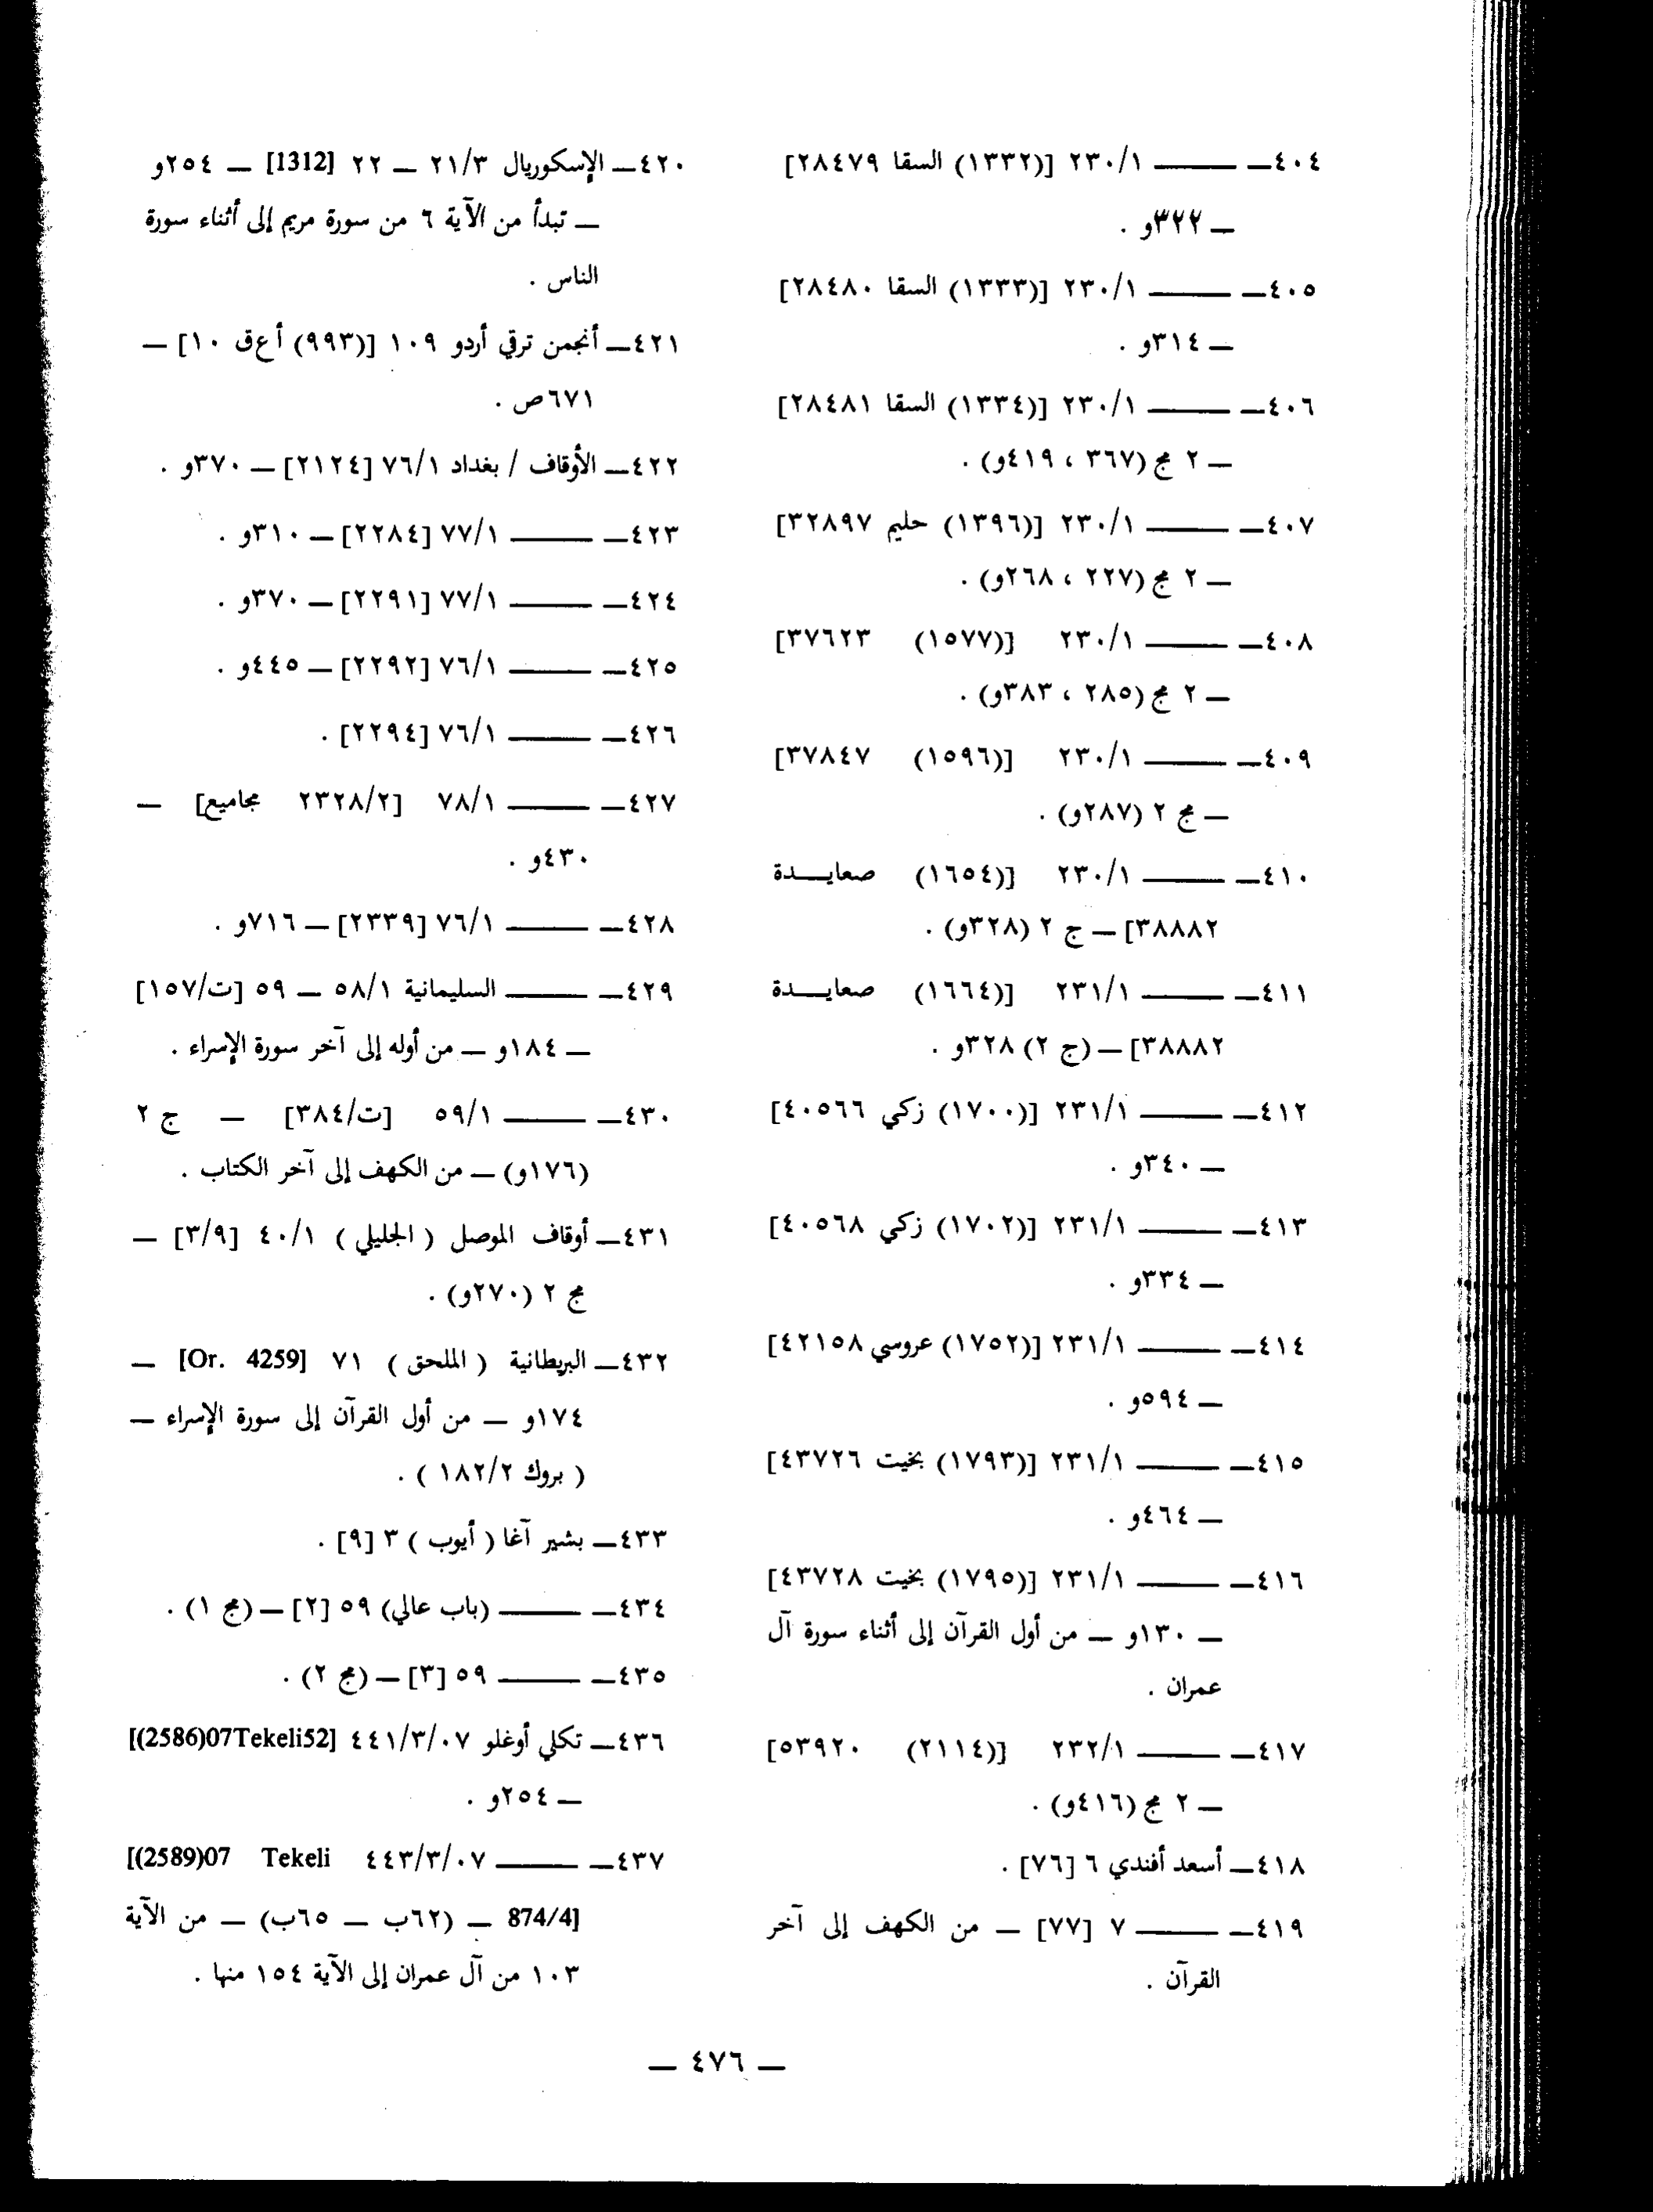 ٤٠٤ــ ـــــــ ٢٣٠/١ [(١٣٣٢) السقا ٢٨٤٧٩]
ــ ٣٢٢و .
٤٠٥ــ ـــــــ ٢٣٠/١ [(١٣٣٣) السقا ٢٨٤٨٠]
ــ ٣١٤و .
٤٠٦ــ ـــــــ ٢٣٠/١ [(١٣٣٤) السقا ٢٨٤٨١]
ــ ٢ مج (٣٦٧ ، ٤١٩و) .
٤٠٧ــ ـــــــ ٢٣٠/١ [(١٣٩٦) حليم ٣٢٨٩٧]
ــ ٢ مج (٢٢٧ ، ٢٦٨و) .
٤٠٨ــ ـــــــ ٢٣٠/١ [(١٥٧٧) ٣٧٦٢٣]
ــ ٢ مج (٢٨٥ ، ٣٨٣و) .
٤٠٩ــ ـــــــ ٢٣٠/١ [(١٥٩٦) ٣٧٨٤٧]
ــ مج ٢ (٢٨٧و) .
٤١٠ــ ـــــــ ٢٣٠/١ [(١٦٥٤) صعايـــدة
٣٨٨٨٢] ــ ج ٢ (٣٢٨و) .
٤١١ــ ـــــــ ٢٣١/١ [(١٦٦٤) صعايـــدة
٣٨٨٨٢] ــ (ج ٢) ٣٢٨و .
٤١٢ــ ـــــــ ٢٣١/١ [(١٧٠٠) زكي ٤٠٥٦٦]
ــ ٣٤٠و .
٤١٣ــ ـــــــ ٢٣١/١ [(١٧٠٢) زكي ٤٠٥٦٨]
ــ ٣٣٤و .
٤١٤ــ ـــــــ ٢٣١/١ [(١٧٥٢) عروسي ٤٢١٥٨]
ــ ٥٩٤و .
٤١٥ــ ـــــــ ٢٣١/١ [(١٧٩٣) بخيت ٤٣٧٢٦]
ــ ٤٦٤و .
٤١٦ــ ـــــــ ٢٣١/١ [(١٧٩٥) بخيت ٤٣٧٢٨]
ــ ١٣٠و ــ من أول القرآن إلى أثناء سورة آل
عمران .
٤١٧ــ ـــــــ ٢٣٢/١ [(٢١١٤) ٥٣٩٢٠]
ــ ٢ مج (٤١٦و) .
٤١٨ــ أسعد أفندي ٦ [٧٦] .
٤١٩ــ ـــــــ ٧ [٧٧] ــ من الكهف إلى آخر
القرآن .
٤٢٠ــ الإسكوريال ٢١/٣ ــ ٢٢ [1312] ــ ٢٥٤و
ــ تبدأ من الآية ٦ من سورة مريم إلى أثناء سورة
الناس .
٤٢١ــ أنجمن ترقي أردو ١٠٩ [(٩٩٣) أع‌ق ١٠] ــ
٦٧١ص .
٤٢٢ــ الأوقاف / بغداد ٧٦/١ [٢١٢٤] ــ ٣٧٠و .
٤٢٣ــ ـــــــ ٧٧/١ [٢٢٨٤] ــ ٣١٠و .
٤٢٤ــ ـــــــ ٧٧/١ [٢٢٩١] ــ ٣٧٠و .
٤٢٥ــ ـــــــ ٧٦/١ [٢٢٩٢] ــ ٤٤٥و .
٤٢٦ــ ـــــــ ٧٦/١ [٢٢٩٤] .
٤٢٧ــ ـــــــ ٧٨/١ [٢٣٢٨/٢ مجاميع] ــ
٤٣٠و .
٤٢٨ــ ـــــــ ٧٦/١ [٢٣٣٩] ــ ٧١٦و .
٤٢٩ــ ـــــــ السليمانية ٥٨/١ ــ ٥٩ [ت/١٥٧]
ــ ١٨٤و ــ من أوله إلى آخر سورة الإسراء .
٤٣٠ــ ـــــــ ٥٩/١ [ت/٣٨٤] ــ ج ٢
(١٧٦و) ــ من الكهف إلى آخر الكتاب .
٤٣١ــ أوقاف الموصل ( الجليلي ) ٤٠/١ [٣/٩] ــ
مج ٢ (٢٧٠و) .
٤٣٢ــ البريطانية ( الملحق ) ٧١ [Or. 4259] ــ
١٧٤و ــ من أول القرآن إلى سورة الإسراء ــ
( بروك ١٨٢/٢ ) .
٤٣٣ــ بشير آغا ( أيوب ) ٣ [٩] .
٤٣٤ــ ـــــــ (باب عالي) ٥٩ [٢] ــ (مج ١) .
٤٣٥ــ ـــــــ ٥٩ [٣] ــ (مج ٢) .
٤٣٦ــ تكلي أوغلو ٤٤١/٣/٠٧ [(2586)07Tekeli52]
ــ ٢٥٤و .
٤٣٧ــ ـــــــ ٤٤٣/٣/٠٧ [(2589)07 Tekeli
874/4] ــ (٦٢ب ــ ٦٥ب) ــ من الآية
١٠٣ من آل عمران إلى الآية ١٥٤ منها .
ــ ٤٧٦ ــ